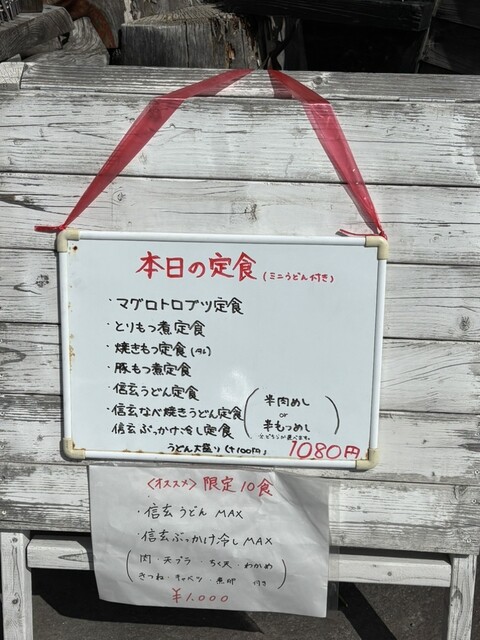 本日の定食(ミニうどん付き)
・マグロトロブツ定食
・とりもつ煮定食
・焼きもつ定食(タレ)
・豚もつ煮定食
・信玄うどん定食
・信玄なべ焼きうどん定食
信玄ぶっかけ冷し定食
(半肉めし
or
半もつめし)
※どちらか選べます。
うどん大盛り(+100円)
1080円
〈オススメ〉限定10食
・信玄うどんMAX
・信玄ぶっかけ冷しMAX
(肉・天プラ・ちく天・わかめ
きつね・キャベツ・煮卵 付き)
¥1.000